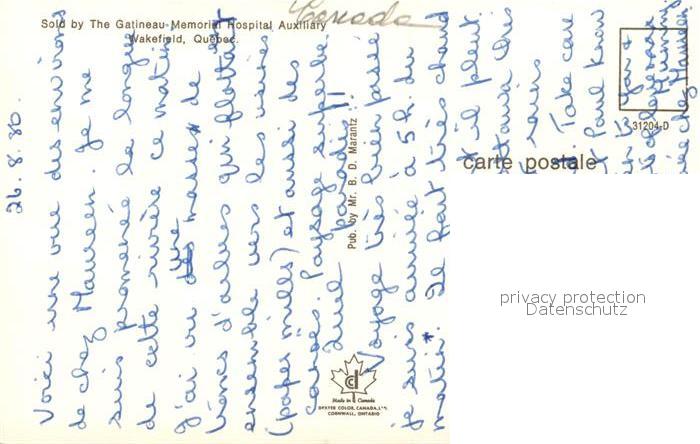 Canada
Sold by The Gatineau Memorial Hospital Auxiliary
Wakefield, Quebec.
26.8.80.
Voici une vue des environs
de chez Maureen. Je me
suis promenée le long
de cette rivière ce matin
J'ai vu une masse de
troncs d'arbres qui flottent
ensemble vers les usines
(paper mills) et aussi des
canoes. Paysage superbe
Quel paradis!!
Voyage très bien passé
je suis arrivée à 5 h. du
matin. Il fait très chaud
et il pleut.
Take care
Paul know
chez Maureen
Pub. by Mr. B. D. Marantz
31204-D
carte postale
privacy protection
Datenschutz
Made in Canada
DEXTER COLOR, CANADA, LTD.
CORNWALL, ONTARIO